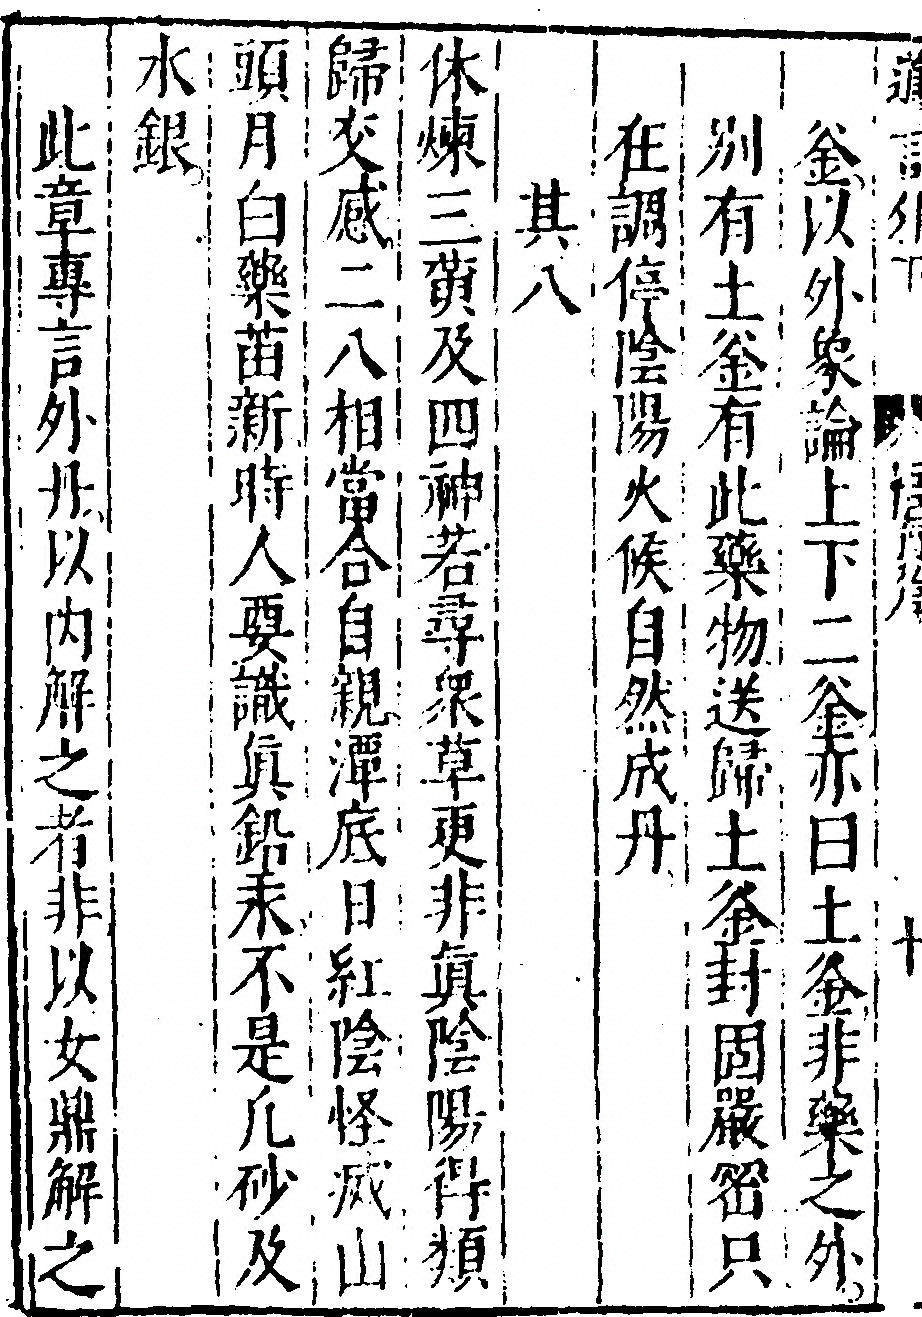 釜以外象論上下二釜亦曰土釜非藥之外
別有土釜有此藥物送歸土釜封固嚴密只
在調停陰陽火候自然成丹
其八
休煉三黄及四神若尋衆草更非眞陰陽得類
歸交感二八相當合自親潭底日紅陰怪滅山
頭月白藥苗新時人要識眞鉛汞不是凡砂及
水銀
此章專言外丹以内解之者非以女鼎解之